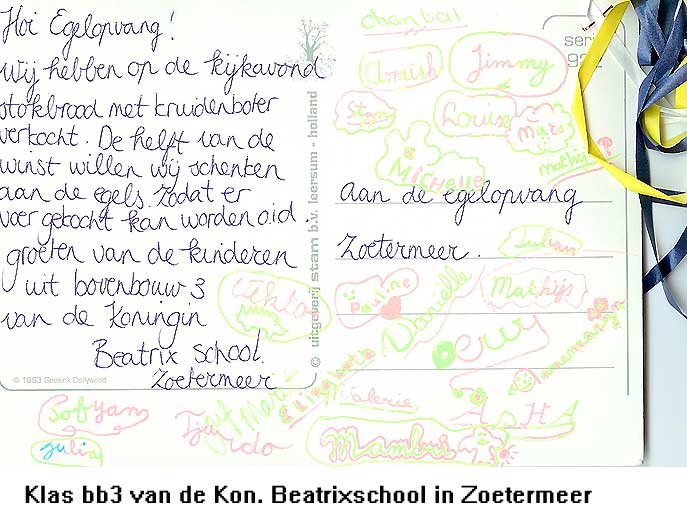 Hoi Egelopvang!
Wij hebben op de kijkavond
stokbrood met kruidenboter
verkocht. De helft van de
winst willen wij schenken
aan de egels zodat er
voer gekocht kan worden o.i.d.
groeten van de kinderen
uit bovenbouw 3
van de Koningin
Beatrix School.
Zoetermeer
© 1993 Geesink Dollywood
© uitgeverij stam b.v. leersum - holland
seri
chantal
Amrish
Jimmy
Stan
Louise
Marc
Michelle
aan de egelopvang
Zoetermeer.
Julian
Pauline
Danielle
Mathijs
Valerie
Sofyan
Julia
Tjardo
Mambui
Klas bb3 van de Kon. Beatrixschool in Zoetermeer